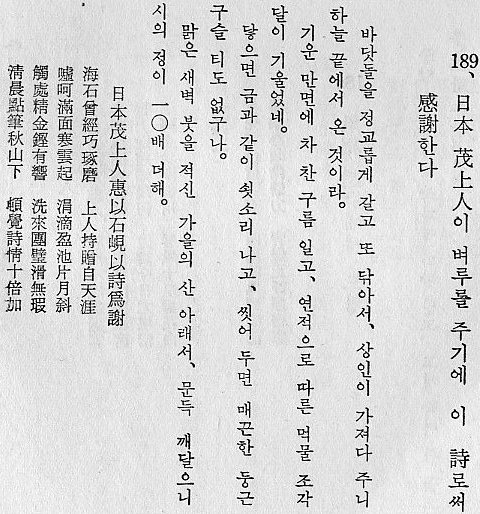 189、日本 茂上人이 벼루를 주기에 이 詩로써
感謝한다
바닷돌을 정교롭게 갈고 또 닦아서、상인이 가져다 주니
하늘 끝에서 온 것이라。
기운 만면에 차 찬 구름 일고、연적으로 따른 먹물 조각
달이 기울었네。
닿으면 금과 같이 쇳소리 나고、씻어 두면 매끈한 둥근
구슬 티도 없구나。
맑은 새벽 붓을 적신 가을의 산 아래서、문득 깨달으니
시의 정이 一〇배 더해。
日本茂上人惠以石峴以詩爲謝
海石曾經巧琢磨 上人持贈自天涯
噓呵滿面寒雲起 涓滴盈池片月斜
觸處精金鏗有響 洗來團璧滑無瑕
淸晨點筆秋山下 頓覺詩情十倍加